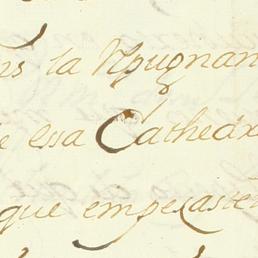 la Repugnan
e esa Cathedr
que empesaste